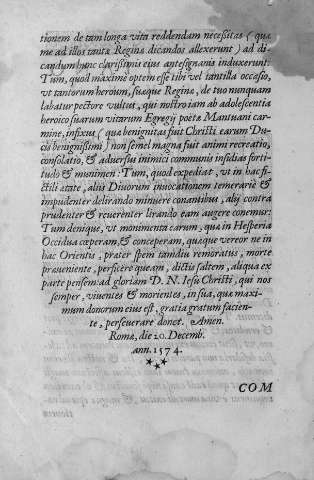 tionem de tam longa vita reddendam necessitas (quæ
me ad illos tantæ Reginæ dicandos allexerunt) ad di-
candum hunc clarissimis eius antesignanis induxerunt:
Tum, quod maximè optem esse tibi vel tantilla occasio,
vt tantorum heroum, suæque Reginæ, de tuo nunquam
labatur pectore vultus, qui nostro iam ab adolescentia
heroico suarum virtutum Egregij poëtæ Mantuani car-
mine, infixus (quæ benignitas fuit Christi earum Du-
cis benignissimi) non semel magna fuit animi recreatio,
consolatio, & aduersus inimici communis insidias forti-
tudo & munimen: Tum, quod expediat, vt in hac fi-
ctili etate, alijs Diuorum inuocationem temerariè &
impudenter delirando minuere conantibus, alij contra
prudenter & reuerenter lirando eam augere conemur:
Tum denique, vt monumenta earum, quæ in Hesperia
Occidua cœperam, & conceperam, quæque vereor ne in
hac Orientis, præter spem tamdiu remoratus, morte
præueniente, perficere queam, dictis saltem, aliqua ex
parte pensem: ad gloriam D. N. Iesu Christi, qui nos
semper, viuentes & morientes, in sua, quæ maxi-
mum donorum eius est, gratia gratum facien-
te, perseuerare donet. Amen.
Romæ, die 20. Decemb.
ann. 1574.
COM